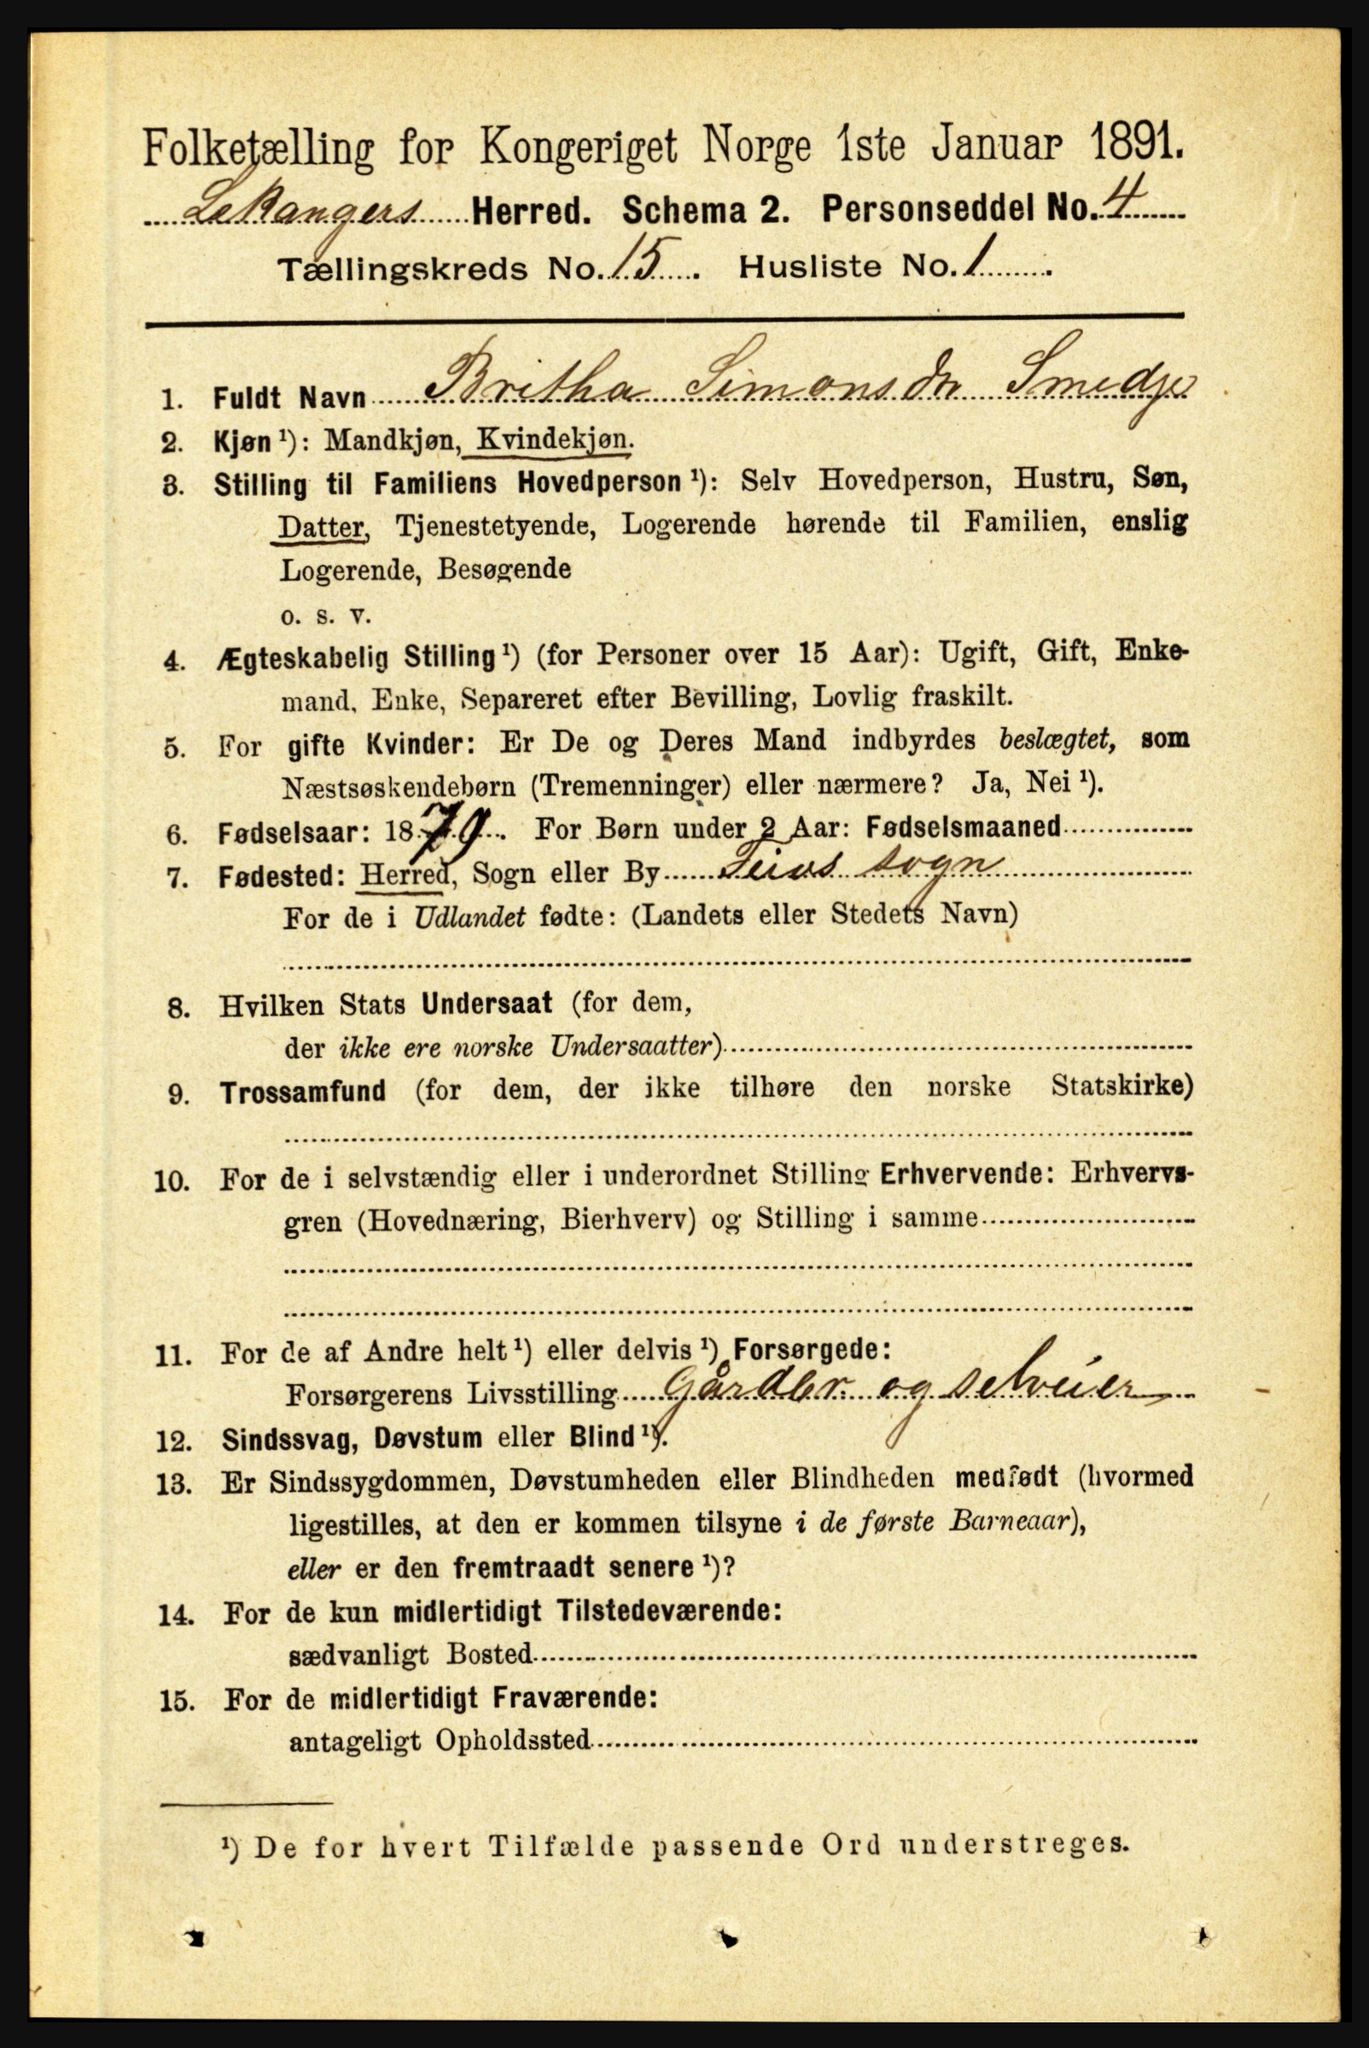 Folketælling for Kongeriget Norge 1ste Januar 1891.
Lekangers Herred. Schema 2. Personseddel No. 4
Tællingskreds No. 15. Husliste No. 1.
1. Fuldt Navn Britha Simonsdr Smedje
2. Kjøn ¹): Mandkjøn, Kvindekjøn.
3. Stilling til Familiens Hovedperson ¹): Selv Hovedperson, Hustru, Søn,
Datter, Tjenestetyende, Logerende hørende til Familien, enslig
Logerende, Besøgende
o. s. v.
4. Ægteskabelig Stilling ¹) (for Personer over 15 Aar): Ugift, Gift, Enke-
mand, Enke, Separeret efter Bevilling, Lovlig fraskilt.
5. For gifte Kvinder: Er De og Deres Mand indbyrdes beslægtet, som
Næstsøskendebørn (Tremenninger) eller nærmere? Ja, Nei ¹).
6. Fødselsaar: 1879. For Børn under 2 Aar: Fødselsmaaned
7. Fødested: Herred, Sogn eller By Feios sogn
For de i Udlandet fødte: (Landets eller Stedets Navn)
8. Hvilken Stats Undersaat (for dem,
der ikke ere norske Undersaatter)
9. Trossamfund (for dem, der ikke tilhøre den norske Statskirke)
10. For de i selvstændig eller i underordnet Stilling Erhvervende: Erhvervs-
gren (Hovednæring, Bierhverv) og Stilling i samme
11. For de af Andre helt ¹) eller delvis ¹) Forsørgede:
Forsørgerens Livsstilling Gårdbr. og selveier
12. Sindssvag, Døvstum eller Blind ¹).
13. Er Sindssygdommen, Døvstumheden eller Blindheden medfødt (hvormed
ligestilles, at den er kommen tilsyne i de første Barneaar),
eller er den fremtraadt senere ¹)?
14. For de kun midlertidigt Tilstedeværende:
sædvanligt Bosted
15. For de midlertidigt Fraværende:
antageligt Opholdssted
¹) De for hvert Tilfælde passende Ord understreges.